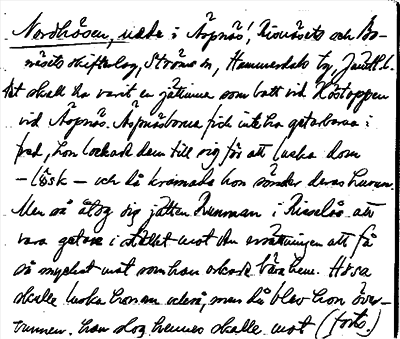 Nordhåsen, udde i Äspnäs', Risnäsets och Bo-
näsets skifteslag, Ströms sn, Hammerdals tg, Jämtl. l.
Det skall ha varit en jättinna som bott vid Höstoppen
vid Äspnäs. Äspnäsborna fick inte ha getarbarna i
fred, hon lockade dem till sig för att luska dom
– lösk – och då kramade hon sönder deras huvun.
Men så åtog sig jätten Runman i Risselås att
vara getare i stället mot den ersättningen att få
så mycket mat som han orkade bära hem. Hosa
skulle luska honom också, men då blev hon över-
vunnen. han slog hennes skalle mot (forts.)